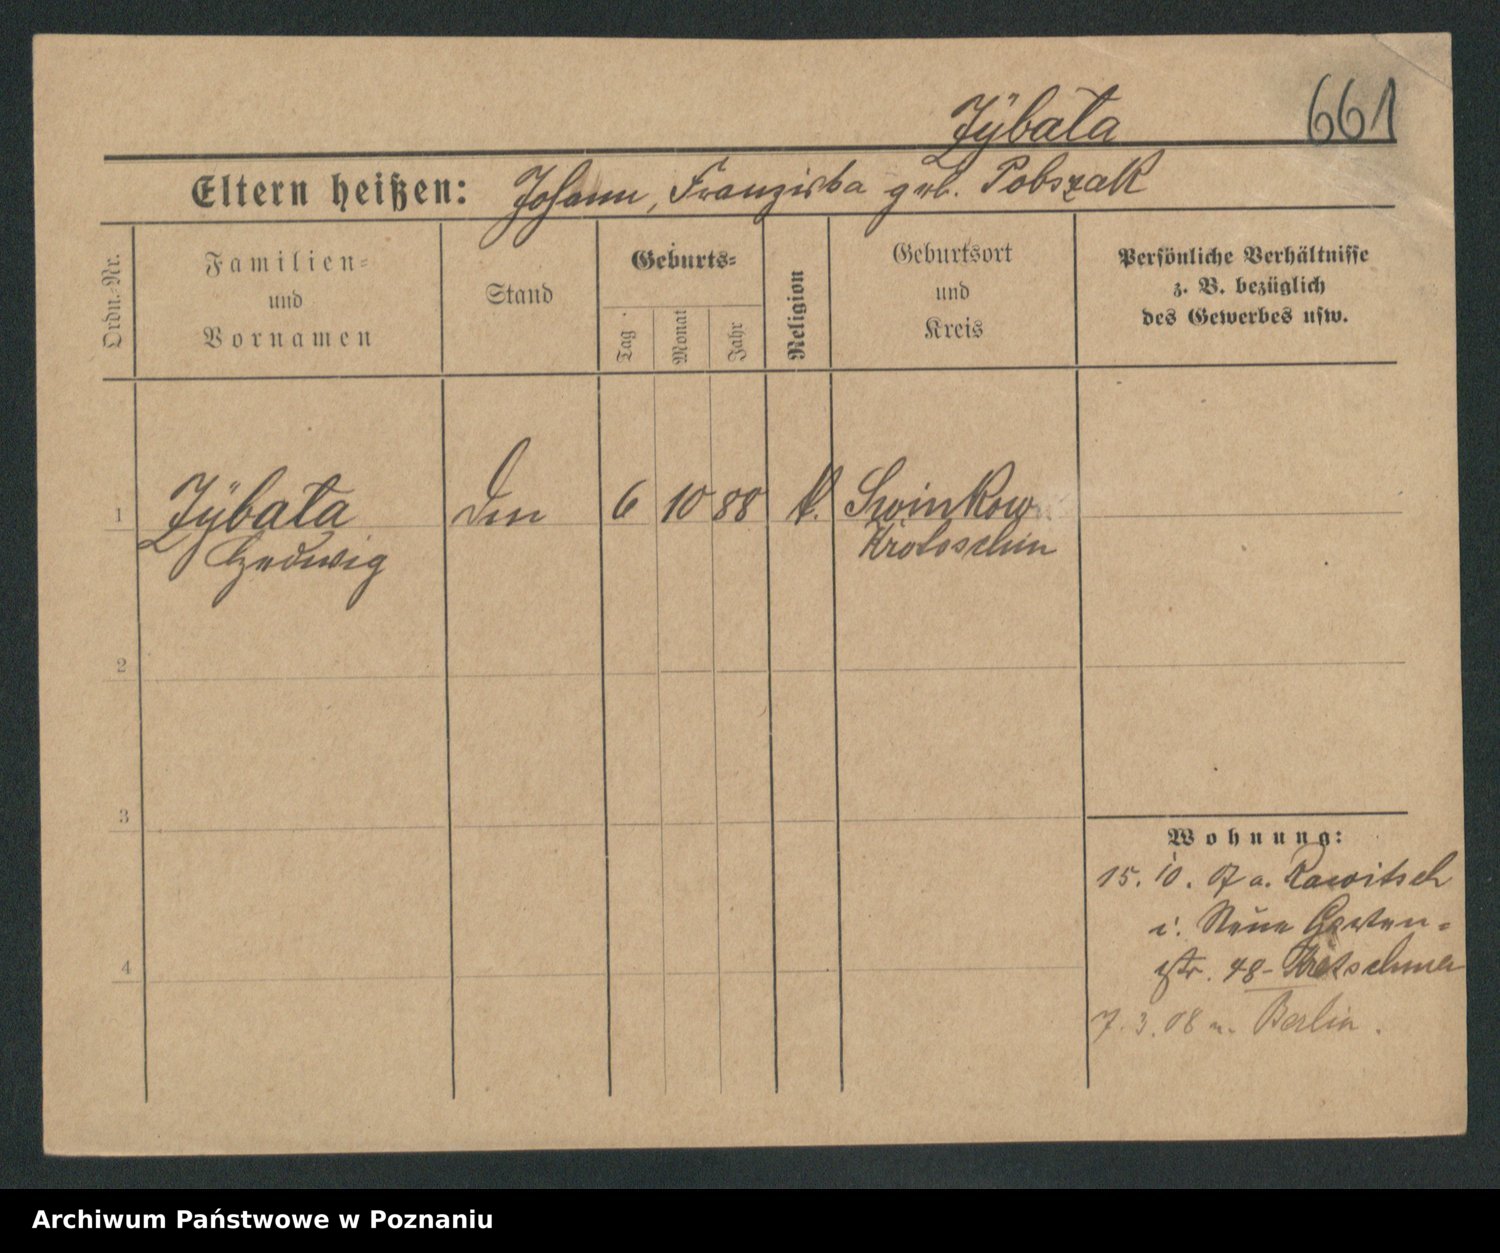 Zÿbała
661
Eltern heißen: Johann, Franziska geb. Pobszak
Ordn.-Nr.
Familien-
und
Vornamen
Stand
Geburts-
Tag
Monat
Jahr
Religion
Geburtsort
und
Kreis
Persönliche Verhältnisse
z. B. bezüglich
des Gewerbes usw.
1 Zÿbała 6 10 88 k. Swinkow
Hedwig Krotoschin
2
3
4
Wohnung:
15. 10. 07 a. Rawitsch
i. Neue Garten-
str. 48 - Kretschmer
7. 3. 08 n. Berlin.
Archiwum Państwowe w Poznaniu